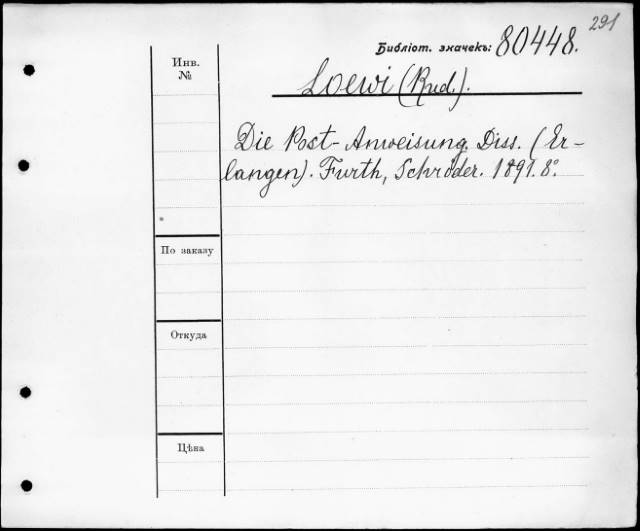 291
Библіот. значекъ: 80448.
Инв. №
Loewi (Rud.).
Die Post-Anweisung. Diss. (Er-
langen). Furth, Schröder. 1891. 8º.
По заказу
Откуда
Цѣна